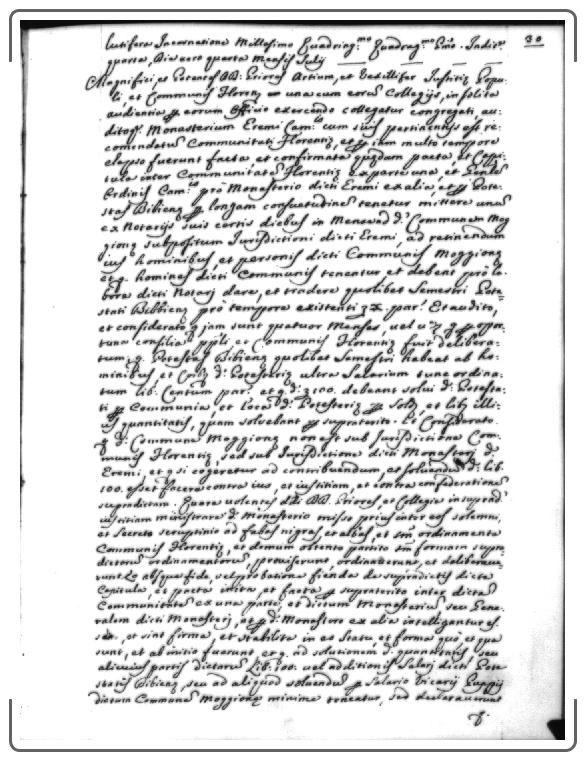 30
lutifera Incarnatione Millesimo Quadring.mo Quadrag.mo Indit.e
quarta, Die vero quarta Mensis Julij
Magnifici, et Potentes DD: Priores Artium, et Vexillifer Justitię Popu:
li et Communis Florenę una cum eorum Collegijs, in solita
audientia eorum Officio exercendo collegatur congregati, au:
Monasterium Eremi Cam: cum suis pertinentijs est re:
comendatum Communitati Florentię, et iam multo tempore
elapso fuerunt facta, et confirmata quędam pacta, et Capi:
tula inter Communitatem Florentię ex parte una, et
Ordinis Cam: pro Monasterio dicti Eremi ex alia, et Pote:
stas Bibienę longam consuetudinem tenetur mittere unum
ex Notarijs suis certis diebus in Mense ad d: Communem Mog
gionę subpositum Jurisditioni dicti Eremi, ad retinendum
ius hominibus, et personis dicti Communis Moggionę
et q. homines dicti Communis tenentur et debent pro la:
bore dicti Notarij dare, et tradere quolibet Semestri Pote:
stati Bibbienę pro tempore existenti par: Et audito,
et considerato q. iam sunt quatuor Menses, vel
tuna consilia pp.li et Communis Florentię fuit delibera:
tum q. Potestas Bibienę quolibet Semestri habeat ab ho:
minibus, et d: Potesterię ultra Salarium tunc ordina:
tum lib. Centum par: et q. d: 100. debeant solui d: Potesta:
ti Communia, et loca d: Potesterię Sold. et lib. illi:
us quantitatis, quam solvebant supraterito. Et Considerato
q. d: Commune Moggionę non est sub Jurisdictione Com:
munis Florentię, sed sub Jurisdictione dicti Monasterij d:
Eremi, et q. si cogeretur ad contribuendum, et solvendum d: lib.
100. esset facere contra ius, et iustitiam, et contra confederationem
supradictam. Quare volentes DD. Priores et Collegia
iustitiam ministrare d: Monasterio misso prius inter eos solemni,
et Secreto scruptinio ad fabas nigras, et albas, et ordinamenta
Communis Florentię, et demum obtento partito formam supra
dictorum ordinamentorum, providerunt, ordinaverunt, et delibera:
verunt absque fide, vel probatione fienda de supradictis dicta
Capitula, et pacta inita, et facta supraterito inter dictam
Communitatem ex una parte, et dictum Monasterium seu Gene:
ralem dicti Monasterij, et d: Monasterio ex alia intelligantur esse
et sint firma, et stabilita in eo statu, et forma quo, et qua
sunt, et ab initio fuerunt, et q. ad solutionem d: quantitatis seu
alicuius partis dictarum lib. 100. vel additionis Salarij dicti Pote
statis Bibienę, seu ad aliquod solvendum Salario Vicarij Puppij
dictum Commune Moggionę minime teneatur, sed declaraverunt